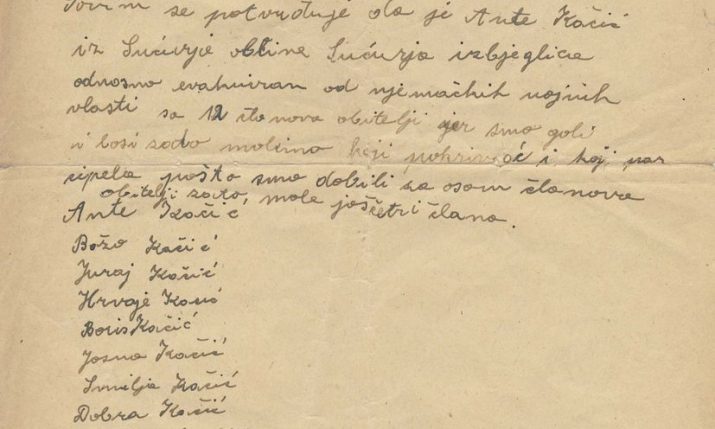 Ovim se potvrđuje da je Ante Kačić
iz Sućurja obćine Sućurja izbjeglica
odnosno evakuiran od njemačkih vojnih
vlasti sa 12 članova obitelji jer smo goli
i bosi zato molimo koji pokrivać i koji par
cipela pošto smo dobili za osam članova
obitelji zato, mole još četri člana.
Ante Kačić
Božo Kačić
Juraj Kačić
Hrvoje Kačić
Boris Kačić
Josna Kačić
Smilja Kačić
Dobra Kačić